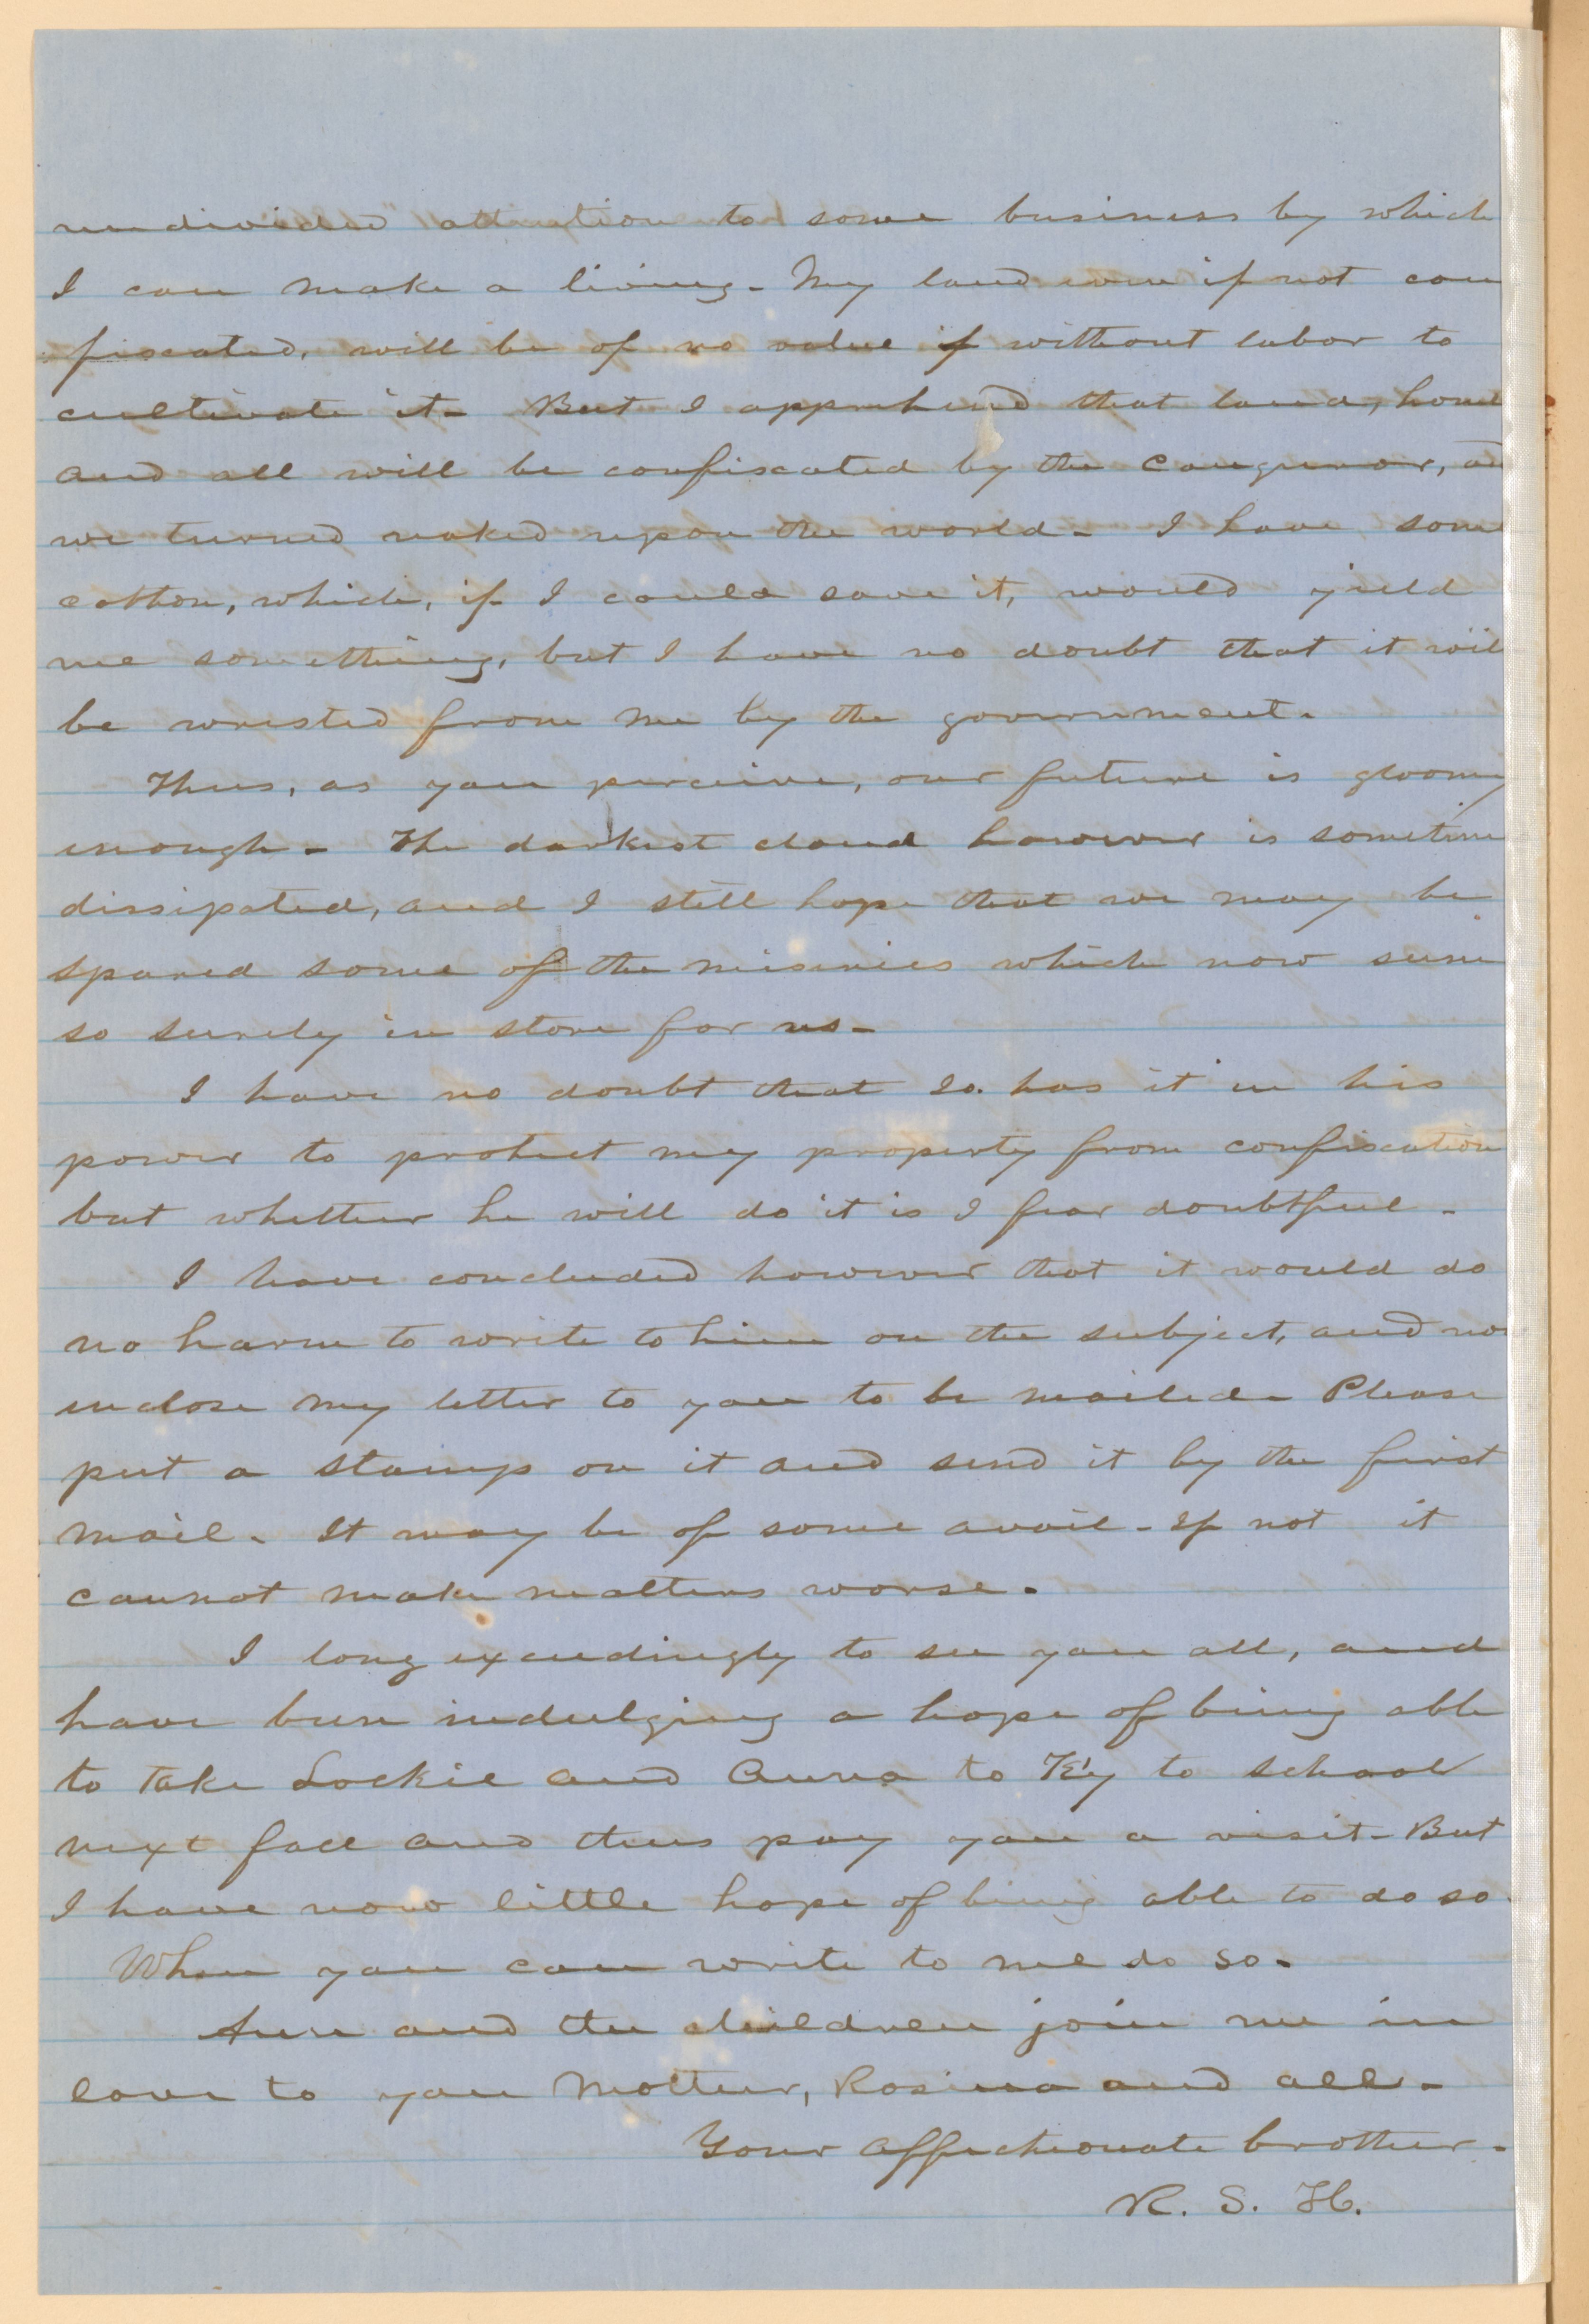 undivided attention to some business by which
I can make a living - My land even if not con
fiscated, will be of no value if without labor to
cultivate it - But I apprehend that land, home
and all will be confiscated by the conqueror, and
we turned naked upon the world - I have some
cotton, which, if I could save it, would yield
me something, but I have no doubt that it will
be wrested from me by the government.
Thus, as you perceive, our future is gloomy
enough - The darkest cloud however is sometime
dissipated, and I still hope that we may be
spared some of the miseries which now seem
so surely in store for us -
I have no doubt that Jo. has it in his
power to protect my property from confiscation
but whether he will do it is I fear doubtful -
I have concluded however that it would do
no harm to write to him on the subject, and now
inclose my letter to you to be mailed - Please
put a stamp on it and send it by the first
mail - It may be of some avail - If not it
cannot make matters worse.
I long exceedingly to see you all, and
have been indulging a hope of being able
to take Lockie and Anna to Ky to school
next fall and thus pay you a visit - But
I have now little hope of being able to do so.
When you can write to me do so -
Ann and the children join me in
love to you Mother, Rosina and all -
Your affectionate brother -
R. S. H.